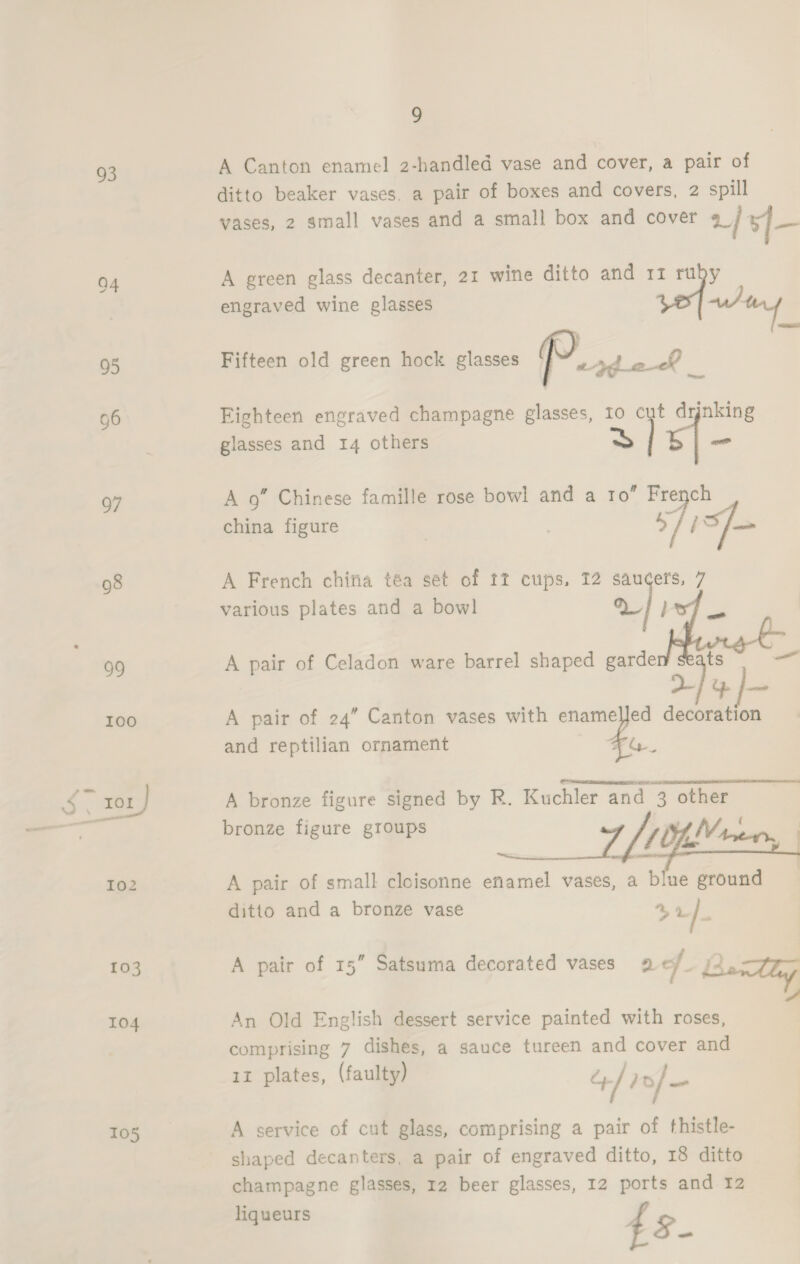 9
93 A Canton enamel 2-handled vase and cover, a pair of
ditto beaker vases. a pair of boxes and covers, 2 spill
vases, 2 small vases and a small box and cover 2/5/-
94 A green glass decanter, 21 wine ditto and 11 ruby
engraved wine glasses
95 Fifteen old green hock glasses
96 Eighteen engraved champagne glasses, 10 cut drinking
glasses and 14 others 3/5/-
97 A 9" Chinese famille rose bowl and a 10" French
china figure 5/15/-
98 A French china tea set of 11 cups, 12 saucers, 7
various plates and a bowl 2/15/-
Hurst
99 A pair of Celadon ware barrel shaped garden seats
2/4/-
100 A pair of 24" Canton vases with enamelled decoration
and reptilian ornament £4.
101 A bronze figure signed by R. Kuchler and 3 other
bronze figure groups 7/10/-
102 A pair of small cloisonne enamel vases, a blue ground
ditto and a bronze vase 32/-
103 A pair of 15" Satsuma decorated vases Bentley
104 An Old English dessert service painted with roses,
comprising 7 dishes, a sauce tureen and cover and
11 plates, (faulty) 4/10/-
105 A service of cut glass, comprising a pair of thistle-
shaped decanters, a pair of engraved ditto, 18 ditto
champagne glasses, 12 beer glasses, 12 ports and 12
liqueurs £8-